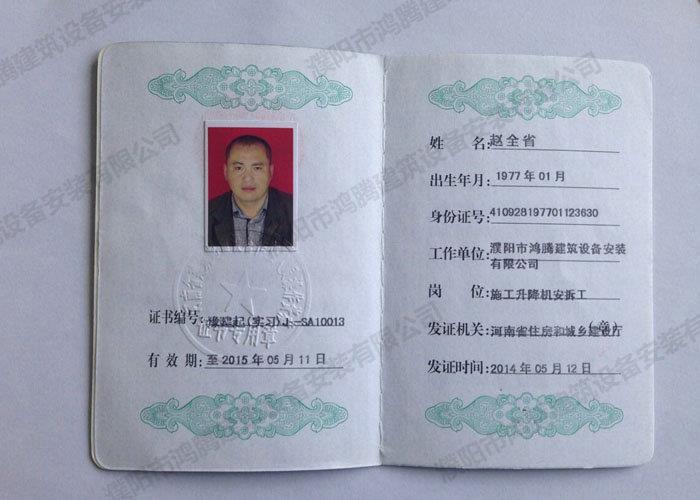 证书编号:豫建起(实习)J-SA10013
有 效 期:至 2015 年 05 月 11 日
姓 名:赵全省
出生年月:1977 年 01 月
身份证号:410928197701123630
工作单位:濮阳市鸿腾建筑设备安装
有限公司
岗 位:施工升降机安拆工
发证机关:河南省住房和城乡建设厅
(章)
发证时间:2014 年 05 月 12 日
证书专用章
濮阳市鸿腾建筑设备安装有限公司